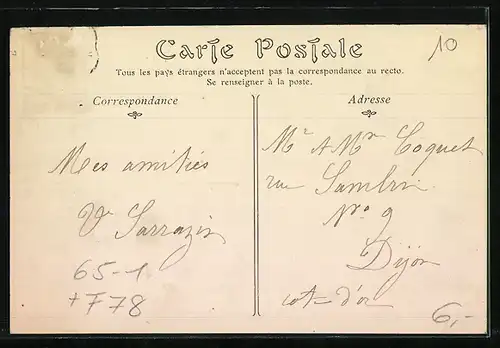 Carte Postale
10
Tous les pays étrangers n'acceptent pas la correspondance au recto.
Se renseigner à la poste.
Correspondance
Mes amitiés
Vr Sarrazin
65-1
+F78
Adresse
Mr & Mme Coquet
rue Sambin
No 9
Dijon
cote d'or
6,-